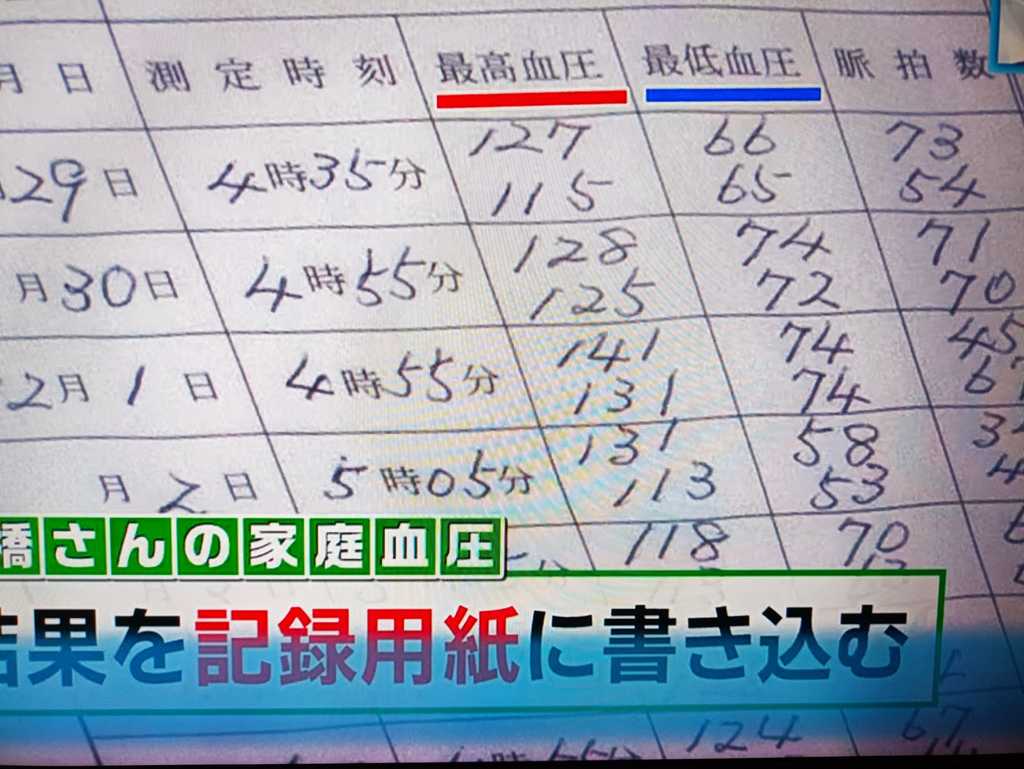 月 日 測定時刻 最高血圧 最低血圧 脈拍数
29日 4時35分 127 66 73
115 65 54
月30日 4時55分 128 74 71
125 72 70
2月1日 4時55分 141 74 45
131 74
月2日 5時05分 131 58
113 53
118 70
橋さんの家庭血圧
結果を記録用紙に書き込む
124 67